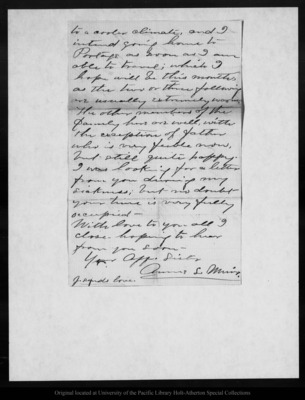 to a cooler climate, and I
intend going home to
Portage as soon as I am
able to travel; which I
hope will be this month,
as the two or three following
are usually extremely warm
The other members of the
family here are well with
the exception of father
who is very feeble now,
but still quite happy.
I was looking for a letter
from you during my
sickness; but no doubt
your time is very fully
occupied—
With love to you all I
close hoping to hear
from you soon—
Your Aff. Sister
Annie L. Muir.
sends love.
Original located at University of the Pacific Library Holt-Atherton Special Collections